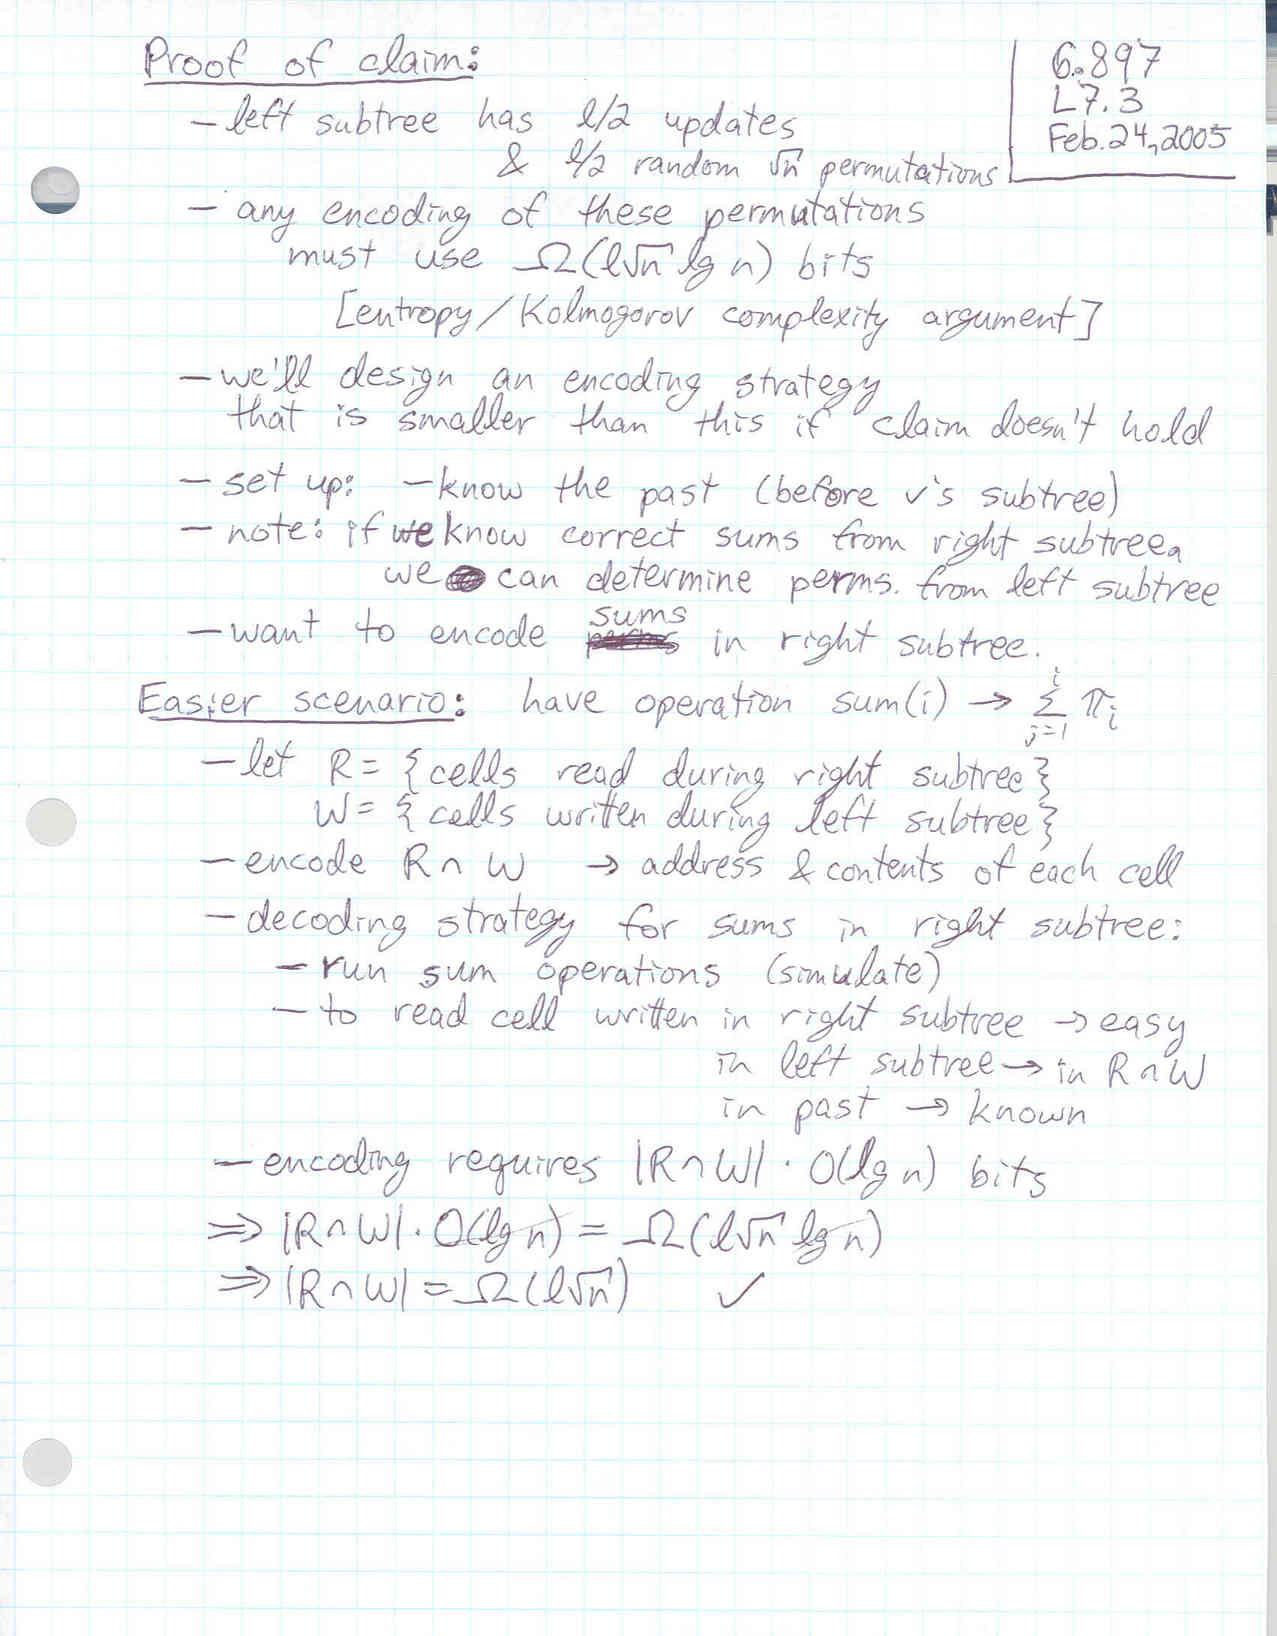 Proof of claim:
6.897
L7.3
Feb. 24, 2005
– left subtree has ℓ/2 updates
& ℓ/2 random √n permutations
– any encoding of these permutations
must use Ω(ℓ√n lg n) bits
[entropy/Kolmogorov complexity argument]
– we'll design an encoding strategy
that is smaller than this if claim doesn't hold
– set up: – know the past (before v's subtree)
– note: if we know correct sums from right subtree,
we can determine perms. from left subtree
– want to encode sums in right subtree.
Easier scenario: have operation sum(i) → Σ_{j=1}^{i} π_i
– let R = {cells read during right subtree}
W = {cells written during left subtree}
– encode R ∩ W → address & contents of each cell
– decoding strategy for sums in right subtree:
– run sum operations (simulate)
– to read cell written in right subtree → easy
in left subtree → in R ∩ W
in past → known
– encoding requires |R ∩ W| · O(lg n) bits
⇒ |R ∩ W| · O(lg n) = Ω(ℓ√n lg n)
⇒ |R ∩ W| = Ω(ℓ√n) ✓